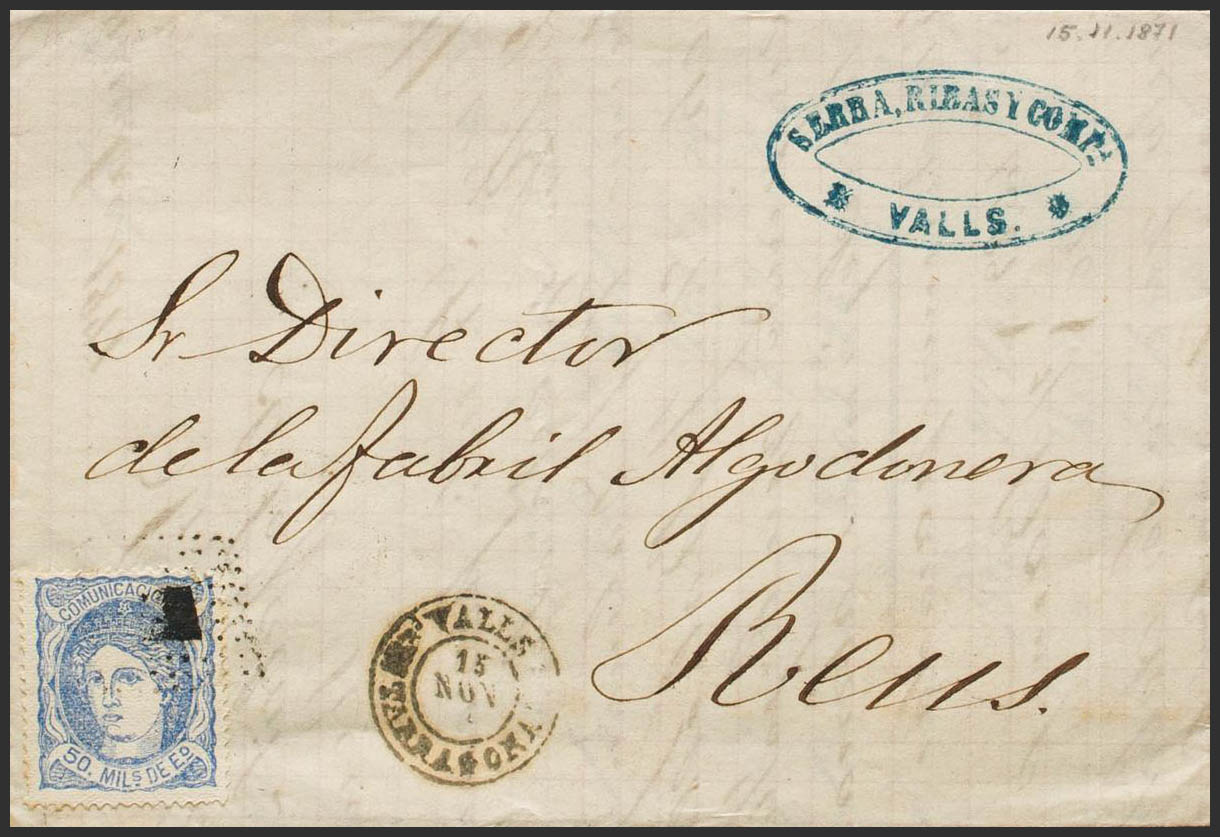 15.11.1871
SERRA, RIBAS Y COMPª
VALLS.
Sr Director
de la fabril Algodonera
Reus.
COMUNICACIO
50. MILS DE Eº
VALLS
15
NOV
TARRAGONA